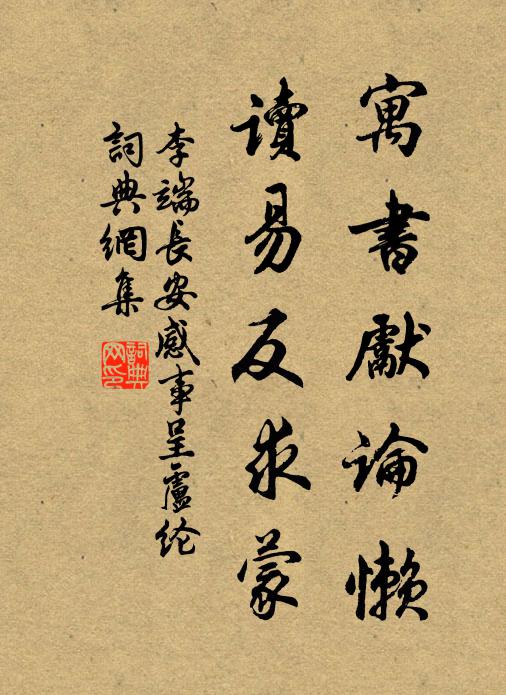 寓書獻論懶
讀易反求蒙
李端長安感事呈盧纶
詞典網集
詞典网印